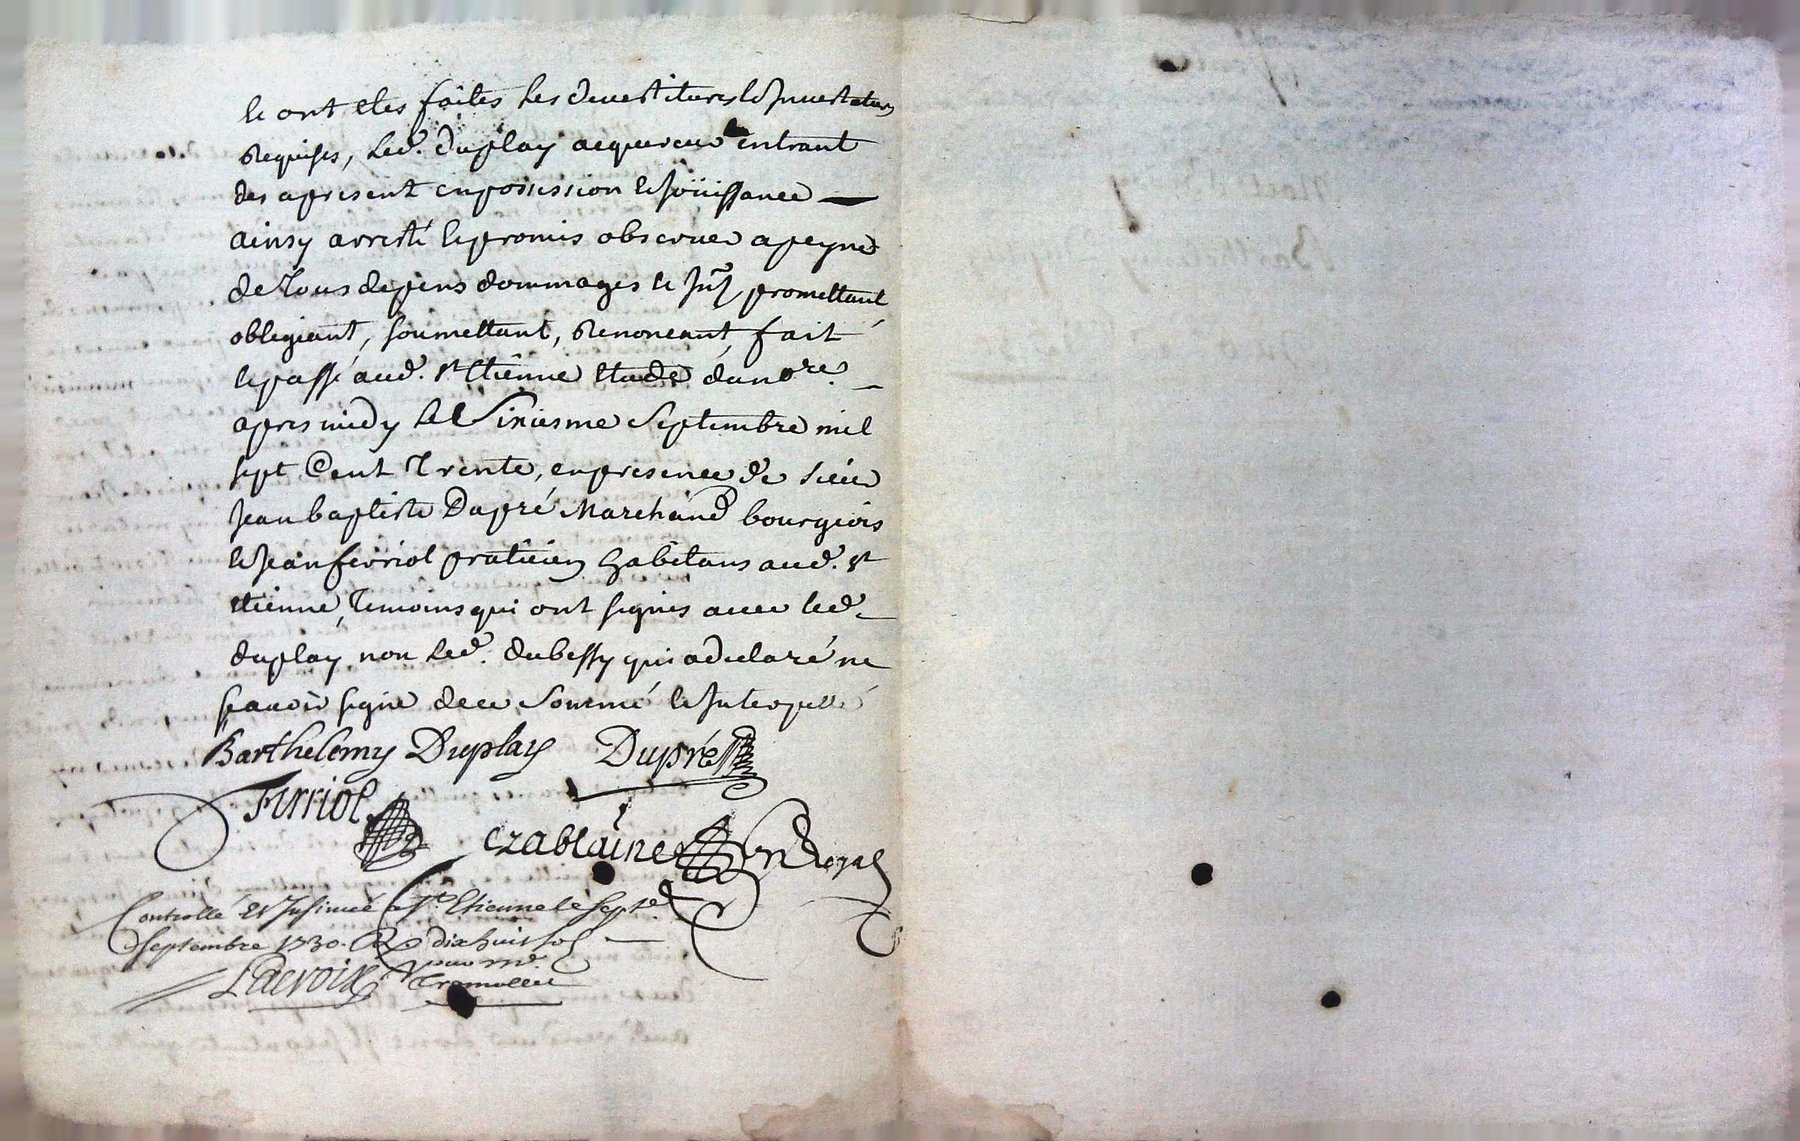 et ont etes faites les devestitures et Investitures
Requises, led. duplay acquereur entrant
des apresent en possession et Joüissance
ainsy arresté et promis observer a peyne
de Tous depens dommages et Jnts, promettant
obligeant, soumettant, Renonceant, fait
et passé aud. st etienne etude du nore.
apres midy le sixiesme septembre mil
sept Cent Trente, en presence de sieur
Jean baptiste Dupré Marchand bourgeois
et Jean ferriol praticien habitans aud. st
etienne, Temoins qui ont signes avec led.
duplay non led. dubessy qui a declaré ne
scavoir signer de ce sommé et Interpellé
Barthelemy Duplay Dupré
Ferriol
Chablaine nre Royal
Controllé et Insinué a St. Etienne le sept
septembre 1730. R dix huit sols
Lacroix pour mr.